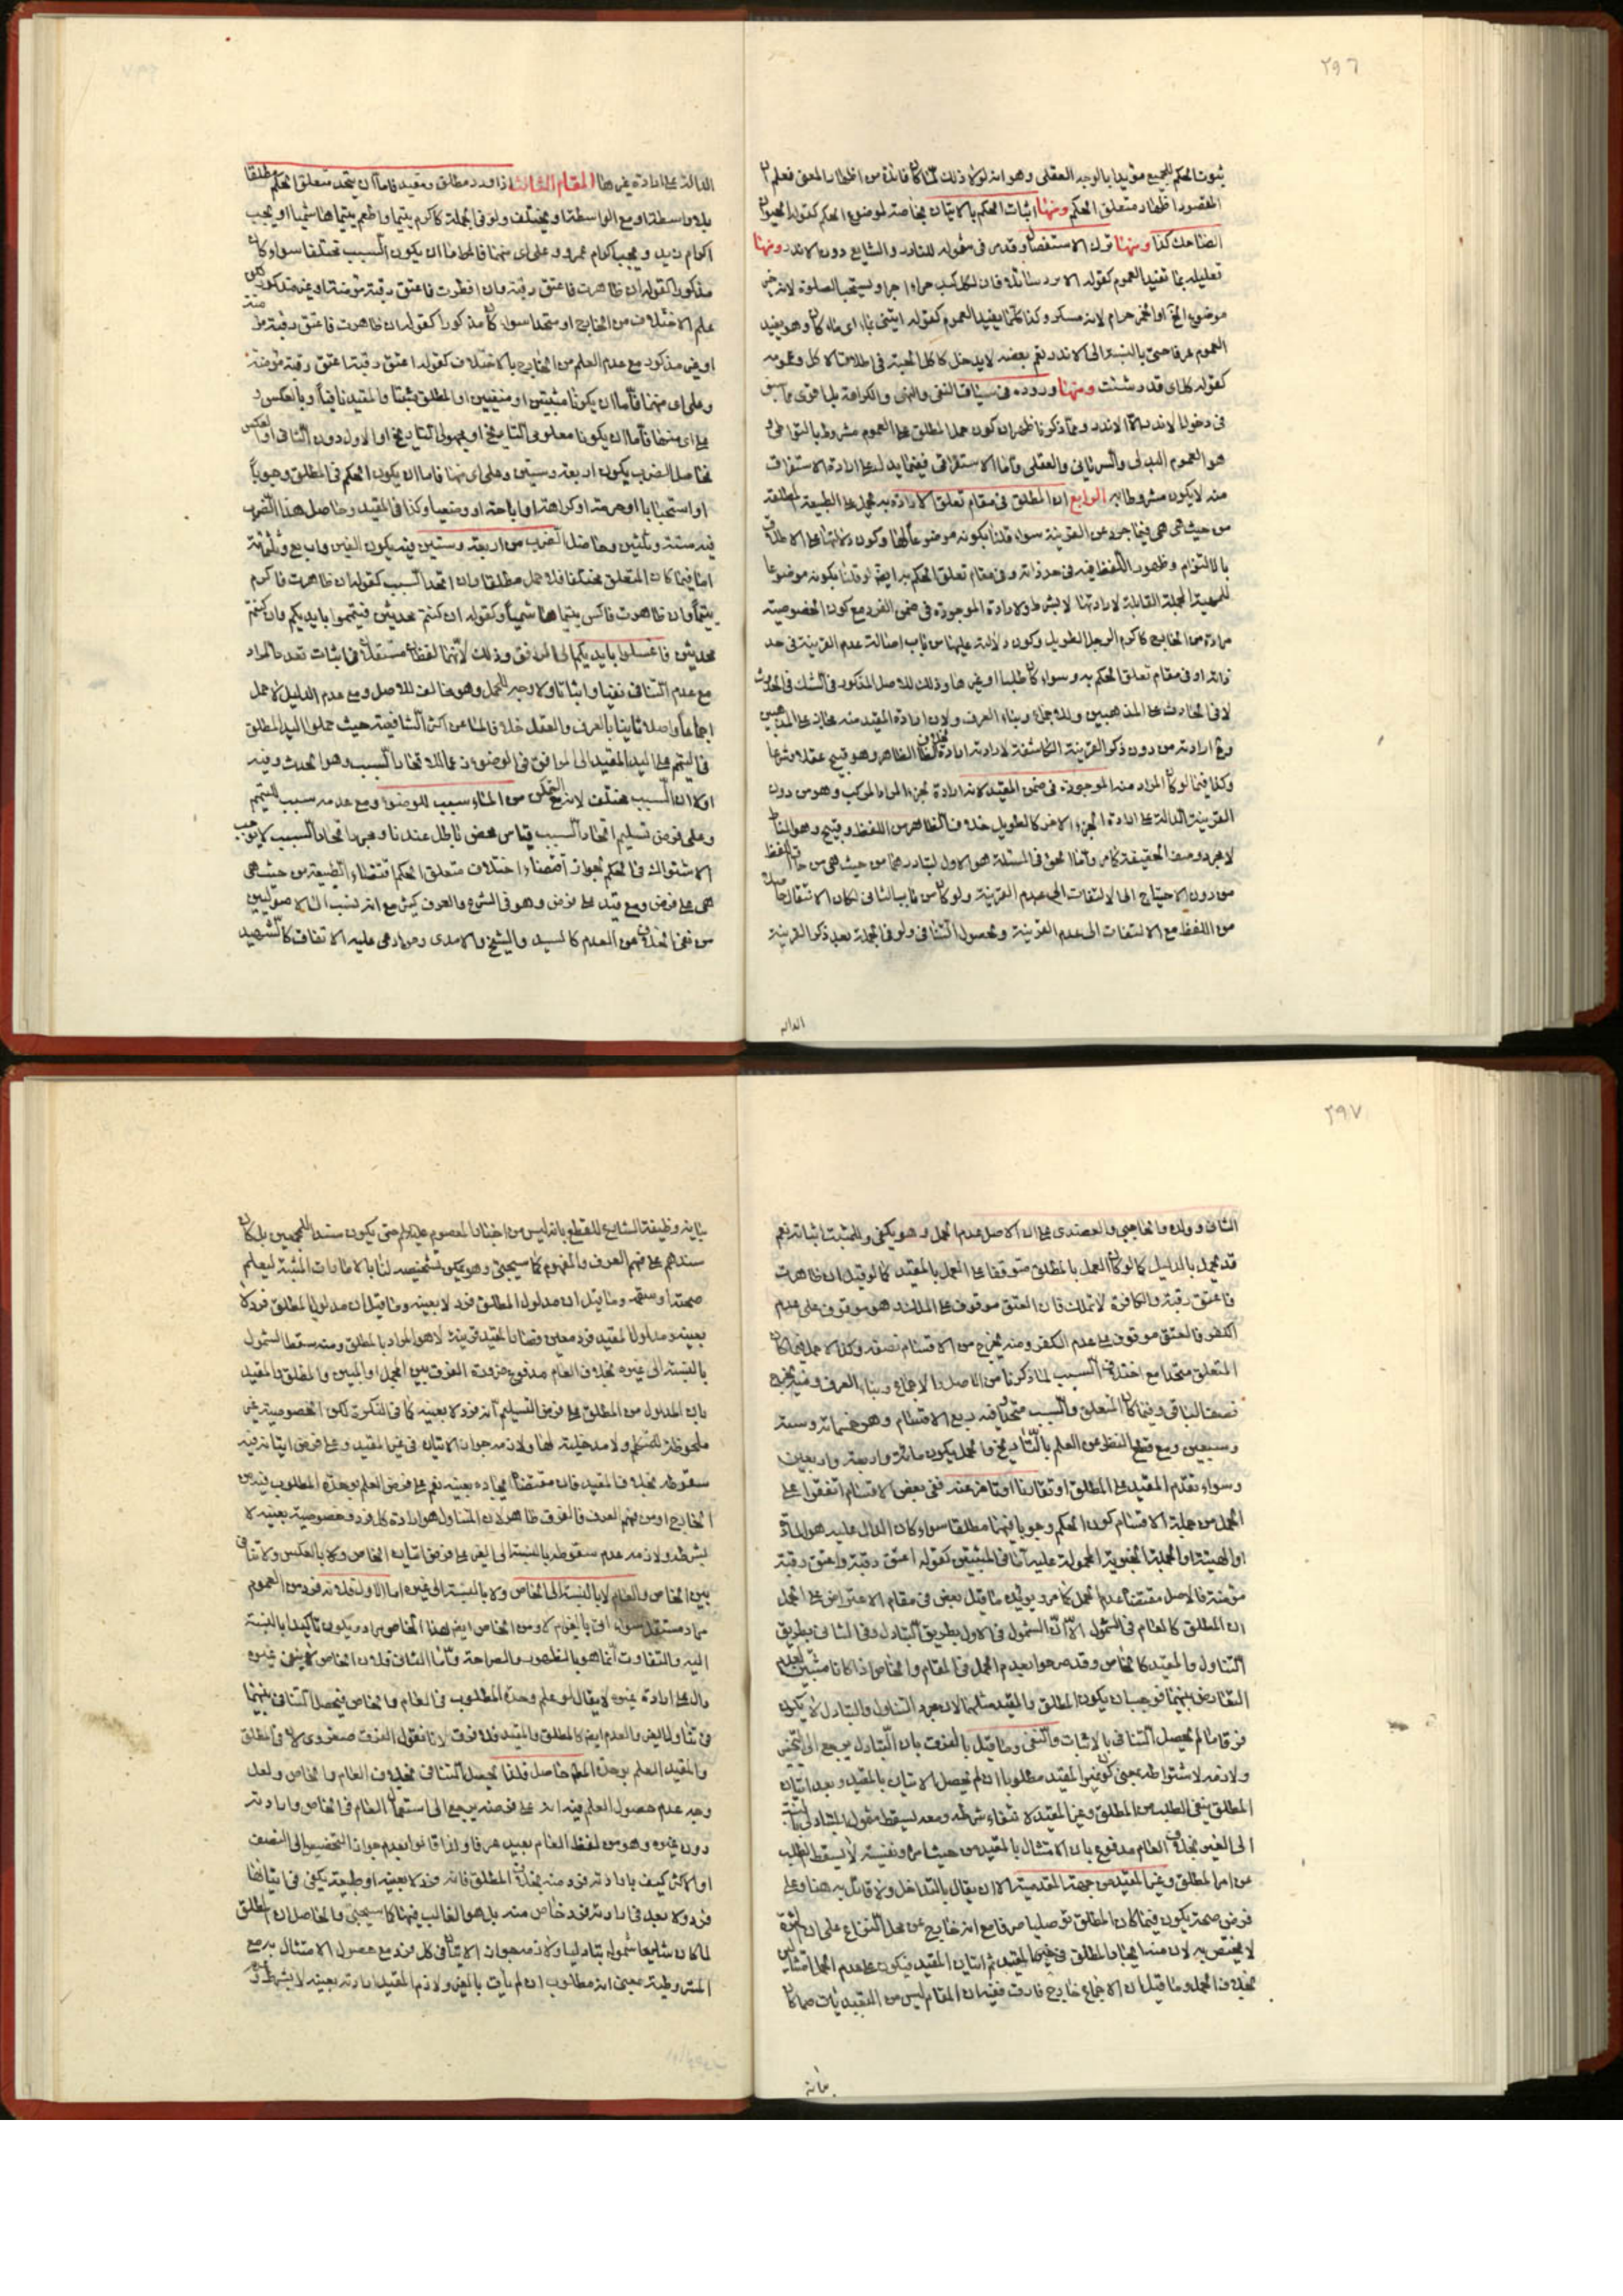 ٢٩٦
ثبوت الحكم للجميع مؤيدا بالوجه العقلى وهو انه لولا ذلك لما كان فائدة من اظهار المعنى فعلم ان
المقصود اظهار متعلق الحكم ومنها اثبات الحكم بالاتيان بخاصة لموضوع الحكم كقوله الحيوان
الضاحك كذا ومنها ترك الاستفصال وقد مر فى شموله للنادر والشايع دون الاندر ومنها
تعليله بما تفيد العموم كقوله
موضوع الخمر حرام لانه مسكر وكذا كلما يفيد العموم كقوله ايتنى بماء اى ماء كان وهو يفيد
العموم عرفا حتى بالنسبة الى الاندر نعم بعضه لا يدخل كاكل الحية فى اطلاق الاكل وعمومه
كقوله كل اى قدر شئت ومنها وروده فى سياق النفى والنهى والكراهة
فى دخول الاندر الا الاندر ومما ذكرنا ظهر ان كون حمل المطلق على العموم مشروط بالتواطى
هو العموم البدلى والسريانى والعقلى واما الاستغراقى ففيما يدل على ارادة الاستغراق
منه لا يكون مشروطا به الرابع ان المطلق فى مقام تعلق الارادة به يحمل على الطبيعة المطلقة
من حيث هى هى فيما جرد عن القرينة سواء قلنا بكونه موضوعا لها وكون دلالتها على الاطلاق
بالالتزام وظهور اللفظ فيه فى حد ذاته وفى مقام تعلق الحكم به ايضا او قلنا بكونه موضوعا
للمهية المجملة القابلة لارادتها لا بشرط ولارادة الموجودة فى ضمن الفرد مع كون الخصوصية
مرادة من الخارج كاكرم الرجل الطويل وكون دلالته عليها من باب اصالة عدم القرينة فى حد
ذاته او فى مقام تعلق الحكم به وسواء كان طلبا او غيرها وذلك للاصل المذكور فى الشك فى الحدوث
لا فى الحادث على المذهبين وللاجماع وبناء العرف ولان ارادة المقيد منه مجاز على المذهبين
ومع ارادته من دون ذكر القرينة الكاشفة لارادته ارادة لخلاف الظاهر وهو قبيح عقلا وشرعا
وكذا فيما لو كان المراد منه الموجودة فى ضمن المقيد لانه ارادة لجزء المراد المركب وهو من دون
القرينة الدالة على ارادة الجزء الاخر كالطويل خلاف الظاهر من اللفظ وقبيح وهو المناط
لا مجرد وصف الحقيقة كما مر واما الحق فى المسئلة هو الاول لتبادرها من حيث هى من حاق اللفظ
من دون الاحتياج الى الالتفات الى عدم القرينة ولو كان من باب الثانى لكان الانتقال حاصلا
من اللفظ مع الالتفات الى عدم القرينة وبحصول التنافى ولو فى الجملة بعد ذكر القرينة
الدالة
الدالة على ارادة غيرها المقام الثالث اذا ورد مطلق ومقيد فاما ان يتحد متعلق الحكم مطلقا
بلا واسطة او مع الواسطة او يختلف ولو فى الجملة كاكرم يتيما واطعم يتيما هاشميا او يجب
اكرام زيد ويجب اكرام عمرو وعلى اى منهما فاما ان يكون السبب مختلفا سواء كان
مذكورا كقوله ان ظاهرت فاعتق رقبة وان افطرت فاعتق رقبة مؤمنة او غير مذكور لكن
علم الاختلاف من الخارج او متحدا سواء كان مذكورا كقوله ان ظاهرت فاعتق رقبة مؤمنة
او غير مذكور مع عدم العلم من الخارج بالاختلاف كقوله اعتق رقبة اعتق رقبة مؤمنة
وعلى اى منهما فاما ان يكونا مثبتين او منفيين او المطلق مثبتا والمقيد نافيا او بالعكس و
على اى منهما فاما ان يكونا معلومى التاريخ او مجهولى التاريخ او الاول دون الثانى او بالعكس
فحاصل الضرب يكون اربعة وستين وعلى اى منهما فاما ان يكون الحكم فى المطلق وجوبا
او استحبابا او حرمة او كراهة او اباحة او وضعيا وكذا فى المقيد وحاصل هذا الضرب
فيه ستة وثلثين وحاصل الضرب من اربعة وستين فيه يكون الفين واربع وثلثمائة
اما فيما كان المتعلق مختلفا فلا حمل مطلقا وان اتحد السبب كقوله ان ظاهرت فاكرم
يتيما وان ظاهرت فاكس يتيما هاشميا وكقوله ان كنتم محدثين فتيمموا بايديكم وان كنتم
محدثين فاغسلوا بايديكم الى المرافق وذلك لانهما لفظان مستقلان فى اثبات تعدد المراد
مع عدم التنافى نفيا واثباتا ولا وجه للحمل وهو مخالف للاصل ومع عدم الدليل لا حمل
اجماعا واصلا ثابتا بالعرف والعقل خلافا لما عن اكثر الشافعية حيث حملوا اليد المطلق
فى التيمم على اليد المقيد الى المرافق فى الوضوء زعما لاتحاد السبب وهو الحدث وفيه
اولا ان السبب مختلف لانه مع التمكن من الماء سبب للوضوء ومع عدمه سبب للتيمم
وعلى فرض تسليم اتحاد السبب قياس محض باطل عندنا ومجرد اتحاد السبب لا يوجب
الاشتراك فى الحكم لجواز اقتضاء اختلاف متعلق الحكم اقتضاء الطبيعة من حيث هى
هى على فرض ومع قيد على فرض وهو فى الشرع والعرف كثير مع انه نسب الى الاصوليين
من نفى الخلاف عن العدم كالسيد والشيخ والامدى ومراد على عليه الاتفاق كالشهيد
٢٩٧
الثانى وولده والحاجبى والعضدى على ان الاصل عدم الحمل وهو يكفى وللمثبت اثباته نعم
قد يحمل بالدليل كما لو كان العمل بالمطلق متوقفا على العمل بالمقيد كما لو قيل ان ظاهرت
فاعتق رقبة والكافرة لا تملك فان العتق موقوف على الملك وهو موقوف على عدم
الكفر فالعتق موقوف على عدم الكفر ومنه يخرج من الاقسام نصفه وكذا لا حمل فيما كان
المتعلق متحدا مع اختلاف السبب لما ذكرنا من الاصل والاجماع وبناء العرف ومنه يخرج
نصف الباقى وفيما كان المتعلق والسبب متحدا فيه ربع الاقسام وهو خمسمائة وستة
وسبعين ومع قطع النظر عن العلم بالتاريخ والجهل يكون مائة واربعة واربعين
وسواء تقدم المقيد على المطلق او تقارنا او تاخر عنه ففى بعض الاقسام اتفقوا على
الحمل من جملة الاقسام كون الحكم وجوبا فيهما مطلقا سواء كان الدال عليه هو المادة
او الهيئة او الجملة الخبرية المحمولة عليه اما فى المثبتين كقوله اعتق رقبة واعتق رقبة
مؤمنة فالاصل مقتضى عدم الحمل كما مر ويؤيده ما قيل بعض فى مقام الاعتراض على الحمل
ان المطلق كالعام فى الشمول الا ان الشمول فى الاول بطريق التبادل وفى الثانى بطريق
التناول والمقيد كالخاص وقد صرحوا بعدم الحمل فى العام والخاص اذا كانا مثبتين لعدم
التعارض بينهما فوجب ان يكون المطلق والمقيد مثلهما لان مجرد التناول والتبادل لا يكون
فرقا ما لم يحصل التنافى بالاثبات والنفى وما قيل بالفرق بان التبادل يرجع الى التخيير
ولازمه لاشتراطه بمعنى كون غير المقيد مطلوبا ان لم يحصل الاتيان بالمقيد وبعد اتيان
المطلق ينفى الطلب من المطلق وغير المقيد لانتفاء شرطه ومعه يسقط
الى الغير بخلاف العام مدفوع بان الامتثال بالمقيد من حيث امره ونفسيته لا يسقط الطلب
عن امر المطلق وغير المقيد من جهة المقدمية الا ان يقال بالتداخل ولا قائل به هنا وعلى
فرض صحته يكون فيما كان المطلق توصليا صرفا مع انه خارج عن محل النزاع على ان الثمرة
لا يختص به لان
بخلاف الحمل وما قيل ان الاجماع خارج فارق ففيه ان المقام ليس من التعبديات
بيانه
بيانه وظيفة الشارع للقطع بانه ليس من اخبار المعصوم عليه السلام حتى يكون سندا للمجمعين بل كان
سندهم على فهم العرف والمفهوم كما سيجئ وهو يمكن تشخيصه لنا بالامارات المثبتة ليعلم
صحته او سقمه وما قيل ان مدلول المطلق فرد لا بعينه وما قيل ان مدلول المطلق فرد لا
بعينه ومدلول المقيد فرد معين فصار المقيد قرينة لاهو المراد بالمطلق ومنه سقط الشمول
بالنسبة الى غيره بخلاف العام مدفوع
بان المدلول من المطلق على فرض التسليم انه فرد لا بعينه كما فى النكرة لكن الخصوصية غير
ملحوظة للمتكلم ولا مدخلية لها ولازمه جواز الاتيان فى غير المقيد وعلى فرض اتيانه فيه
سقوطه بخلاف المقيد فان مقتضاه ايجاده بعينه نعم على فرض العلم بوحدة المطلوب فيه من
الخارج او من فهم العرف فالفرق ظاهر لان التناول هو ارادة كل فرد فخصوصية بعينه لا
بشرط ولازمه عدم سقوطه بالنسبة الى الغير على فرض اتيان الخاص ولا بالعكس ولا تنافى
بين الخاص والعام لا بالنسبة الى الخاص ولا بالنسبة الى غيره اما الاول فلانه فرد من العموم
مراد مستقل سواء اتى بالعام ام لا ومن الخاص ايضا هذا الخاص مراد ويكون تاكيدا بالنسبة
اليه والتفاوت انما هو بالظهور والصراحة واما الثانى فلان الخاص لا ينفى غيره
دال على ارادة غيره لا يقال لو علم وحدة المطلوب فى العام والخاص فيحصل التنافى بينهما
فى تناول الغير والعدم ايضا كالمطلق والمقيد فلا فرق لانا نقول الفرق صغروى لان فى المطلق
والمقيد العلم بوحدة الحكم حاصل فلذا يحصل التنافى بخلاف العام والخاص ولعل
وجه عدم حصول العلم فيه انه على فرضه يرجع الى استعمال العام فى الخاص وارادته
دون غيره وهو من لفظ العام بعيد عرفا ولذا قالوا بعدم جواز التخصيص الى النصف
او الاكثر كيف بارادته فرد منه بخلاف المطلق فانه فرد لا بعينه او طبيعة يكفى فى اتيانها
فرد ولا بعد فى ارادته فرد خاص منه بل هو الغالب فيهما كما سيجئ والحاصل ان المطلق
لما كان شايعا شموله تبادليا ولازمه جواز الاتيان فى كل فرد مع حصول الامتثال به مع
المشروطية بمعنى انه مطلوب ان لم يأت بالغير ولازم المقيد ارادته بعينه لا بشرط